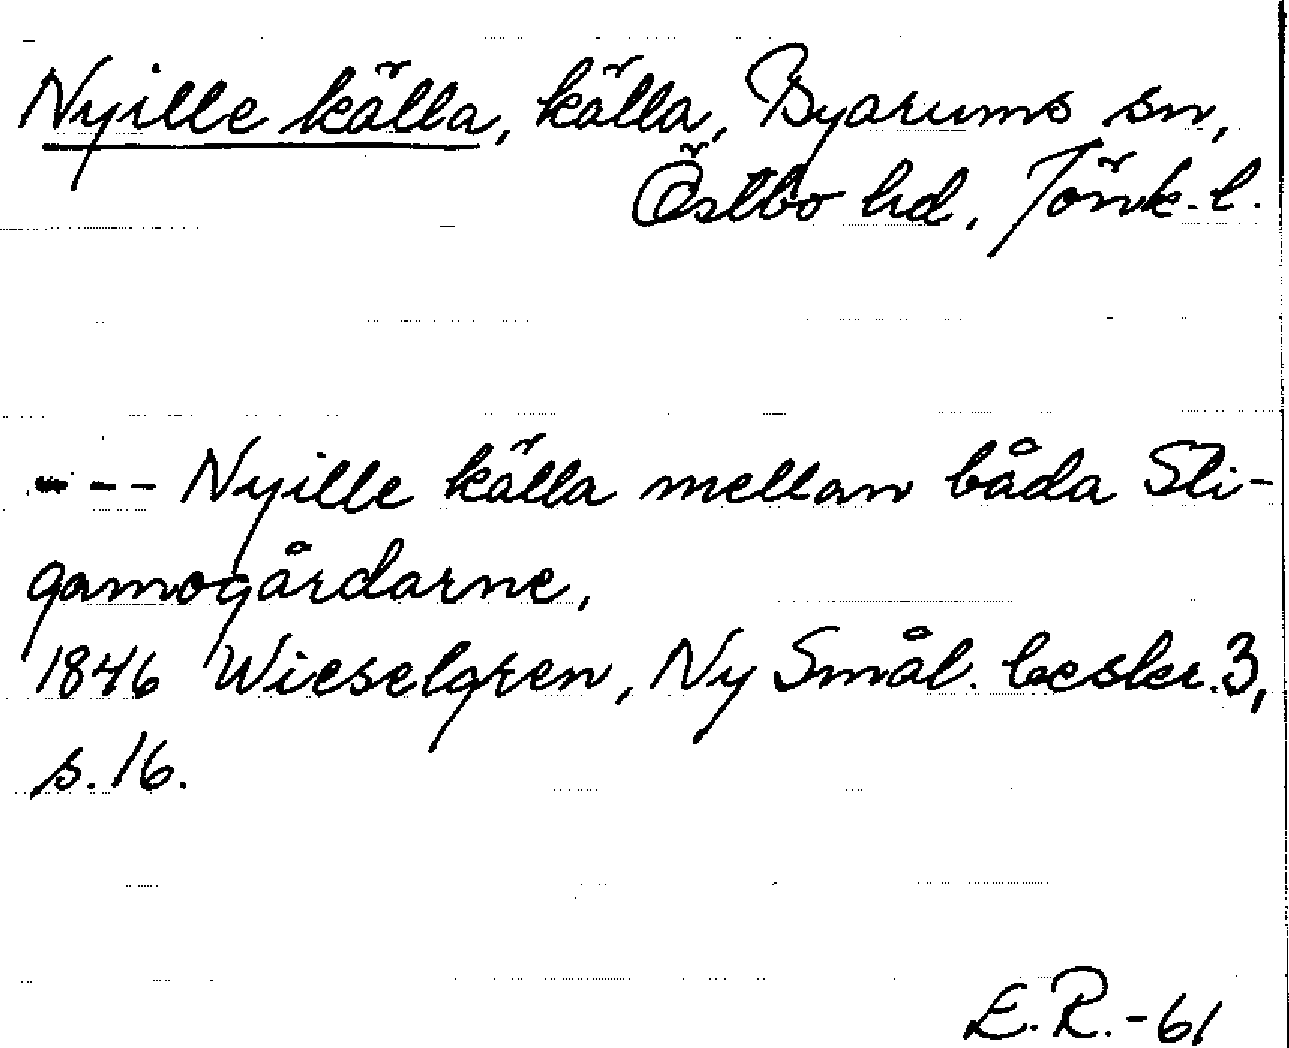 Nyille källa, källa, Byarums sn,
Östbo hd, Jönk. l.
--- Nyille källa mellan båda Sli-
gamogårdarne,
1846 Wieselgren, Ny Smål. beskr. 3,
s. 16.
E.R.-61